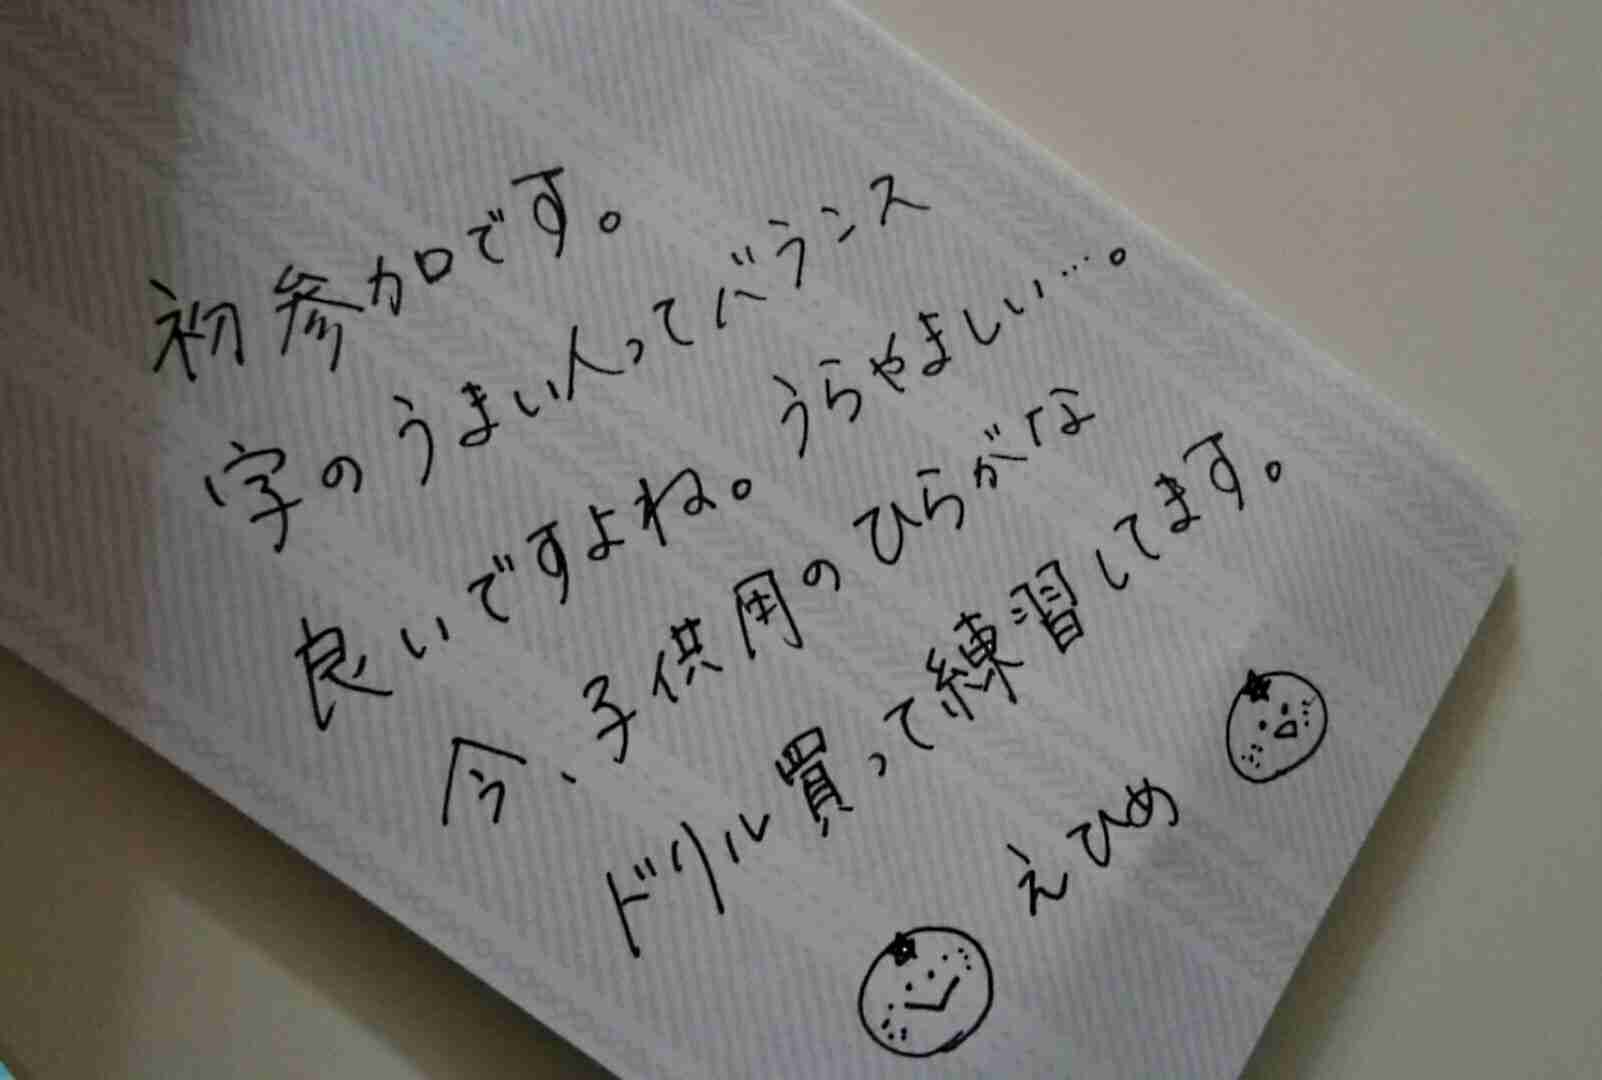 初参加です。
字のうまい人ってバランス
良いですよね。うらやましい…。
今、子供用のひらがな
ドリル買って練習してます。
えひめ